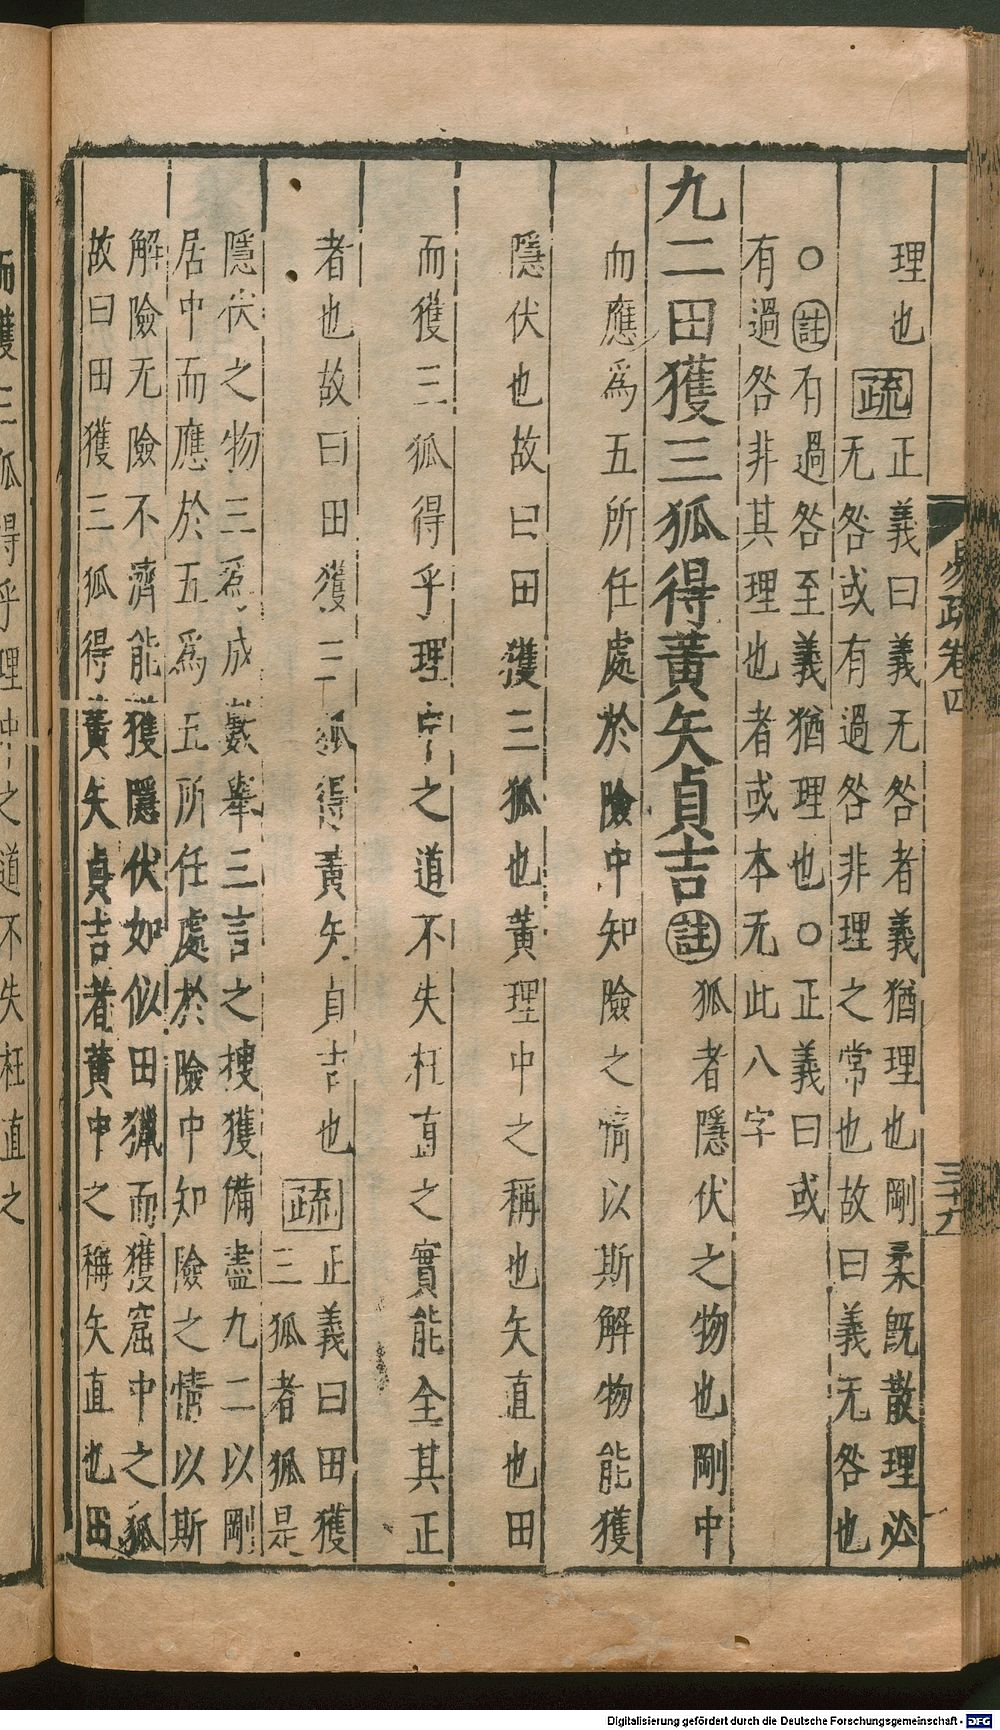 易疏卷四
三十九
理也
疏
正義曰義无咎者義猶理也剛柔既散理必
无咎或有過咎非理之常也故曰義无咎也
○註有過咎至義猶理也○正義曰或
有過咎非其理也者或本无此八字
九二田獲三狐得黃矢貞吉註狐者隱伏之物也剛中
而應為五所任處於險中知險之情以斯解物能獲
隱伏也故曰田獲三狐也黃理中之稱也矢直也田
而獲三狐得乎理中之道不失枉直之實能全其正
者也故曰田獲三狐得黃矢貞吉也疏
正義曰田獲
三狐者狐是
隱伏之物三爲成數舉三言之搜獲備盡九二以剛
居中而應於五爲五所任處於險中知險之情以斯
解險无險不濟能獲隱伏如似田獵而獲窟中之狐
故曰田獲三狐得黃矢貞吉者黃中之稱矢直也田
而獲三狐得乎理中之道不失枉直之
Digitalisierung gefördert durch die Deutsche Forschungsgemeinschaft - DFG